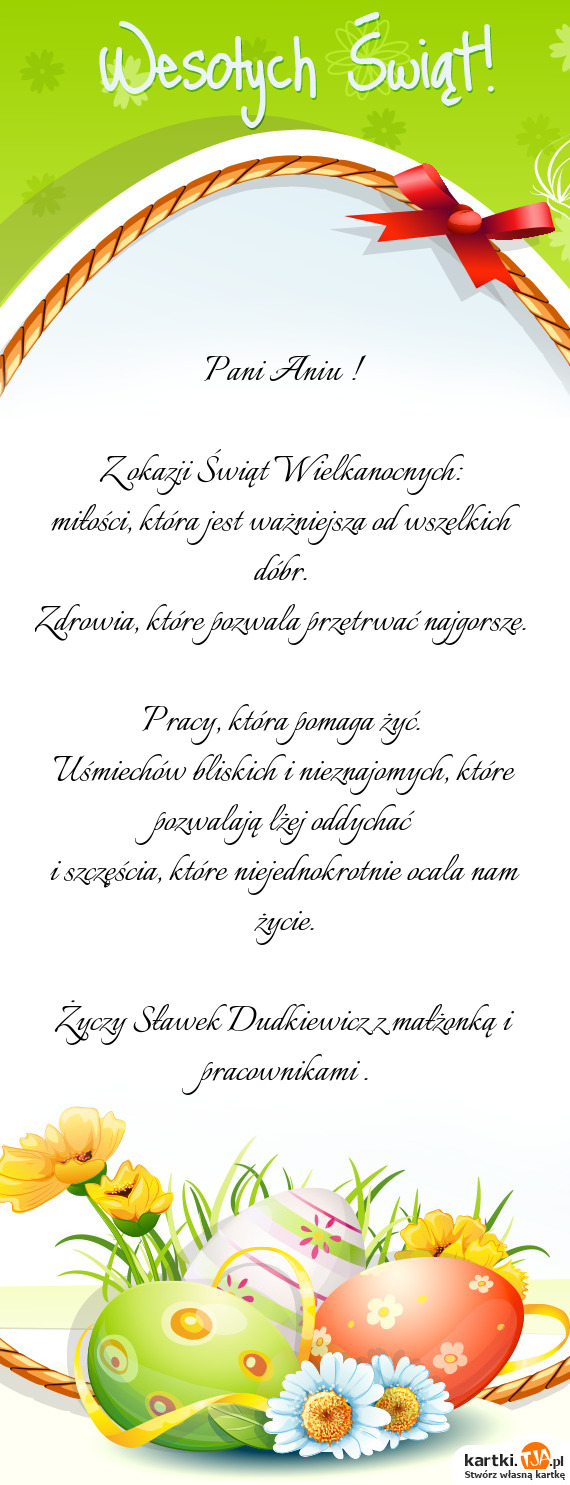 Wesołych Świąt!
Pani Aniu !
Z okazji Świąt Wielkanocnych:
miłości, która jest ważniejsza od wszelkich
dóbr.
Zdrowia, które pozwala przetrwać najgorsze.
Pracy, która pomaga żyć.
Uśmiechów bliskich i nieznajomych, które
pozwalają lżej oddychać
i szczęścia, które niejednokrotnie ocala nam
życie.
Życzy Sławek Dudkiewicz z małżonką i
pracownikami .
kartki.TJA.pl
Stwórz własną kartkę